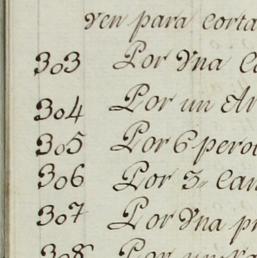 ven para corta
303 Por Vna Ca
304 Por un Ar
305 Por 6 pero
306 Por 3 Can
307 Por Vna pr
308 Por un